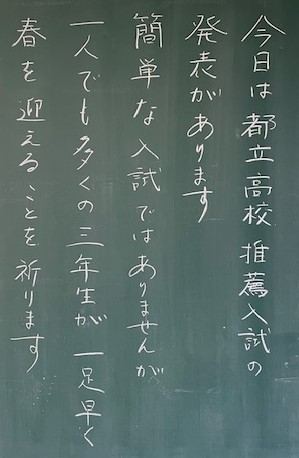 今日は都立高校推薦入試の
発表があります
簡単な入試ではありませんが
一人でも多くの三年生が一足早く
春を迎えることを祈ります